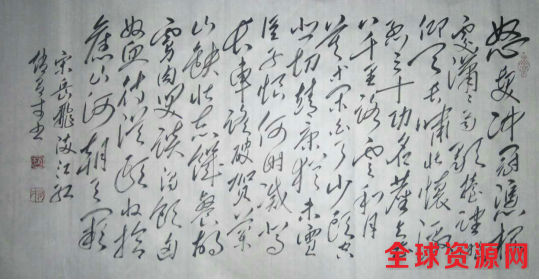 怒发冲冠凭栏
处潇潇雨歇抬望眼
仰天长啸壮怀激
烈三十功名尘与土
八千里路云和月
莫等闲白了少年头空
悲切靖康耻犹未雪
臣子恨何时灭驾
长车踏破贺兰
山缺壮志饥餐胡
虏肉笑谈渴饮匈
奴血待从头收拾
旧山河朝天阙
宋岳飞满江红
全球资源网